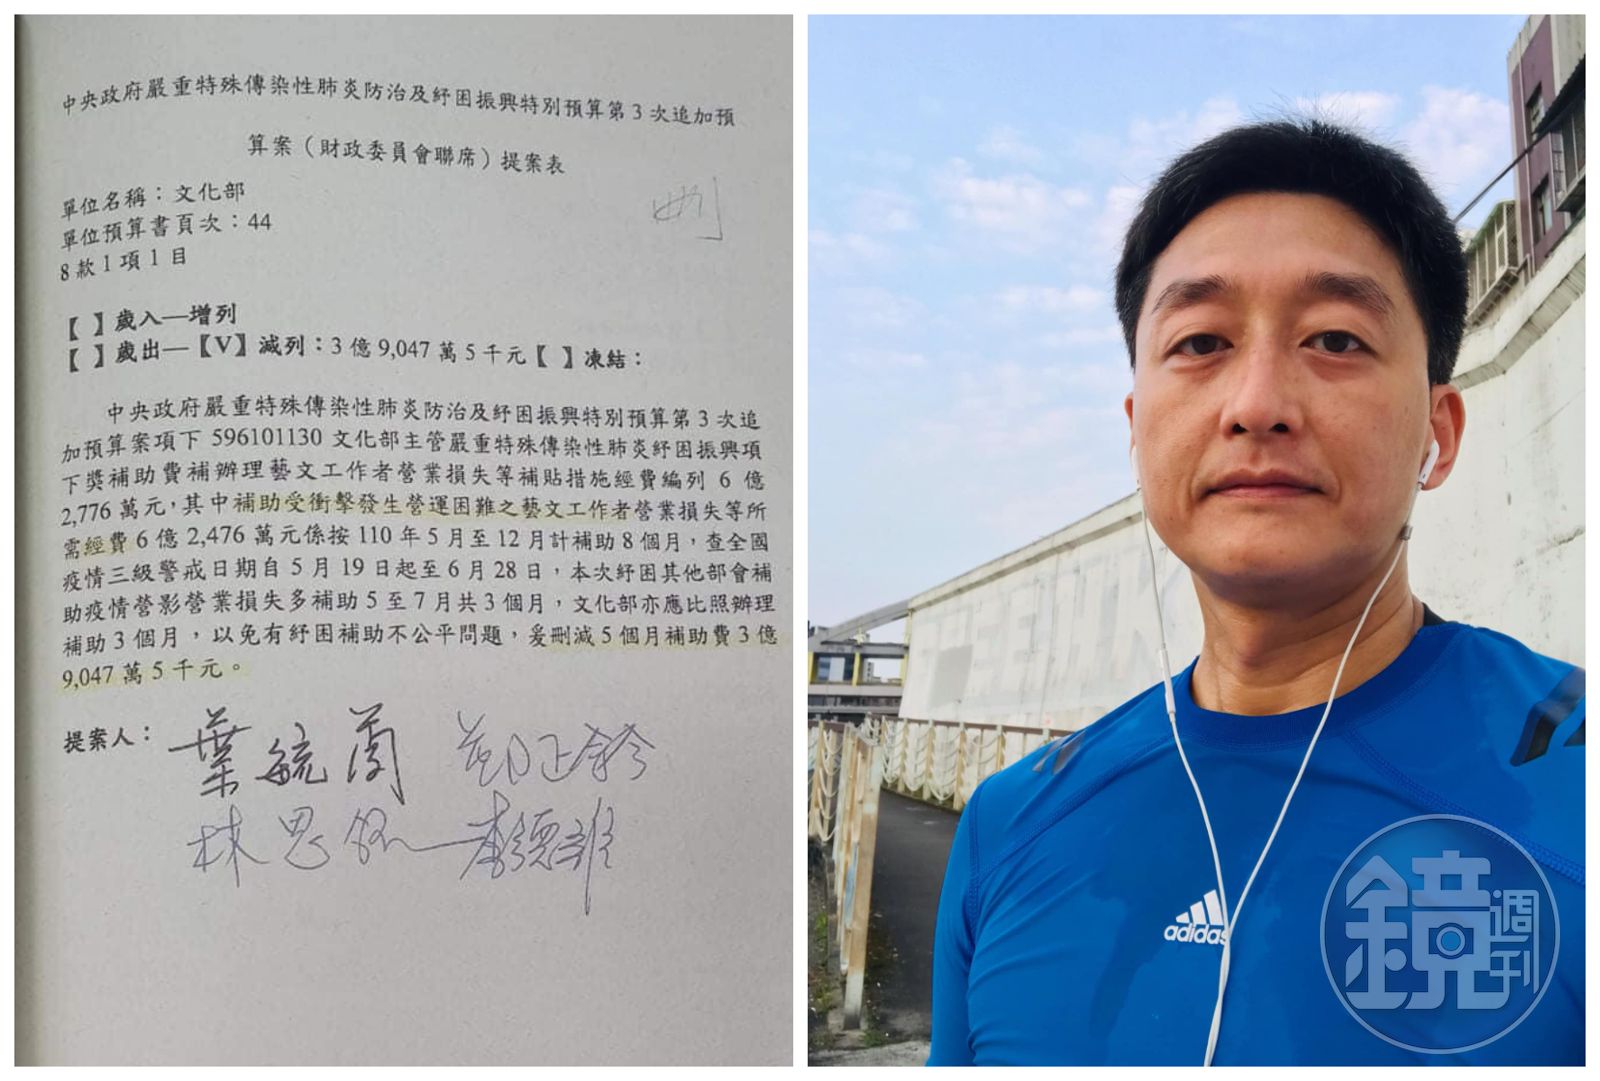 中央政府嚴重特殊傳染性肺炎防治及紓困振興特別預算第3次追加預
算案（財政委員會聯席）提案表
單位名稱：文化部
單位預算書頁次：44
8款1項1目
【 】歲入—增列
【 】歲出—【V】減列：3億9,047萬5千元【 】凍結：
中央政府嚴重特殊傳染性肺炎防治及紓困振興特別預算第3次追
加預算案項下596101130文化部主管嚴重特殊傳染性肺炎紓困振興項
下獎補助費補辦理藝文工作者營業損失等補貼措施經費編列6億
2,776萬元，其中補助受衝擊發生營運困難之藝文工作者營業損失等所
需經費6億2,476萬元係按110年5月至12月計補助8個月，查全國
疫情三級警戒日期自5月19日起至6月28日，本次紓困其他部會補
助疫情營影營業損失多補助5至7月共3個月，文化部亦應比照辦理
補助3個月，以免有紓困補助不公平問題，爰刪減5個月補助費3億
9,047萬5千元。
提案人：葉毓蘭 鄭正鈐
林思銘 李德維
adidas
鏡週刊